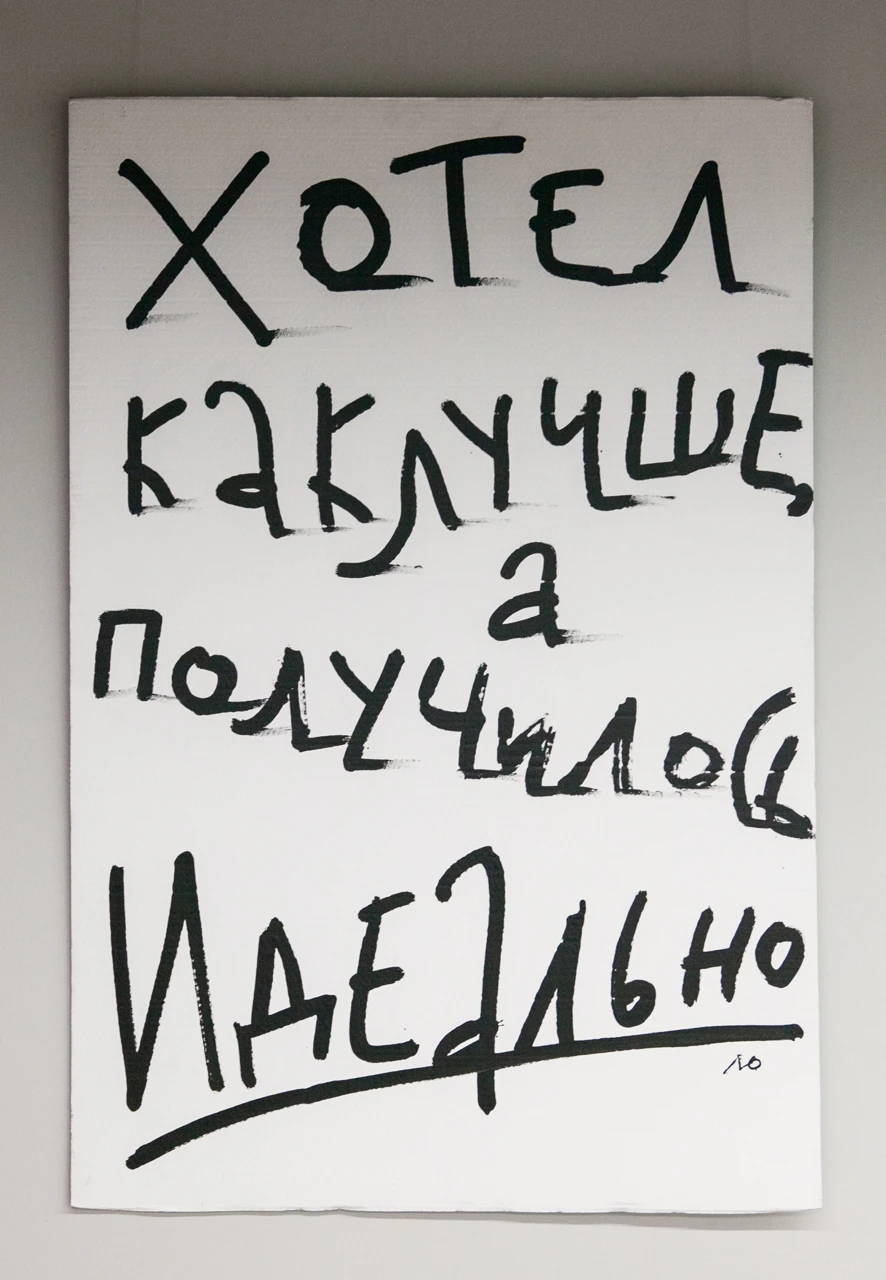 ХОТЕЛ
КАК ЛУЧШЕ
а
получилось
ИДЕАЛЬНО
ЛО